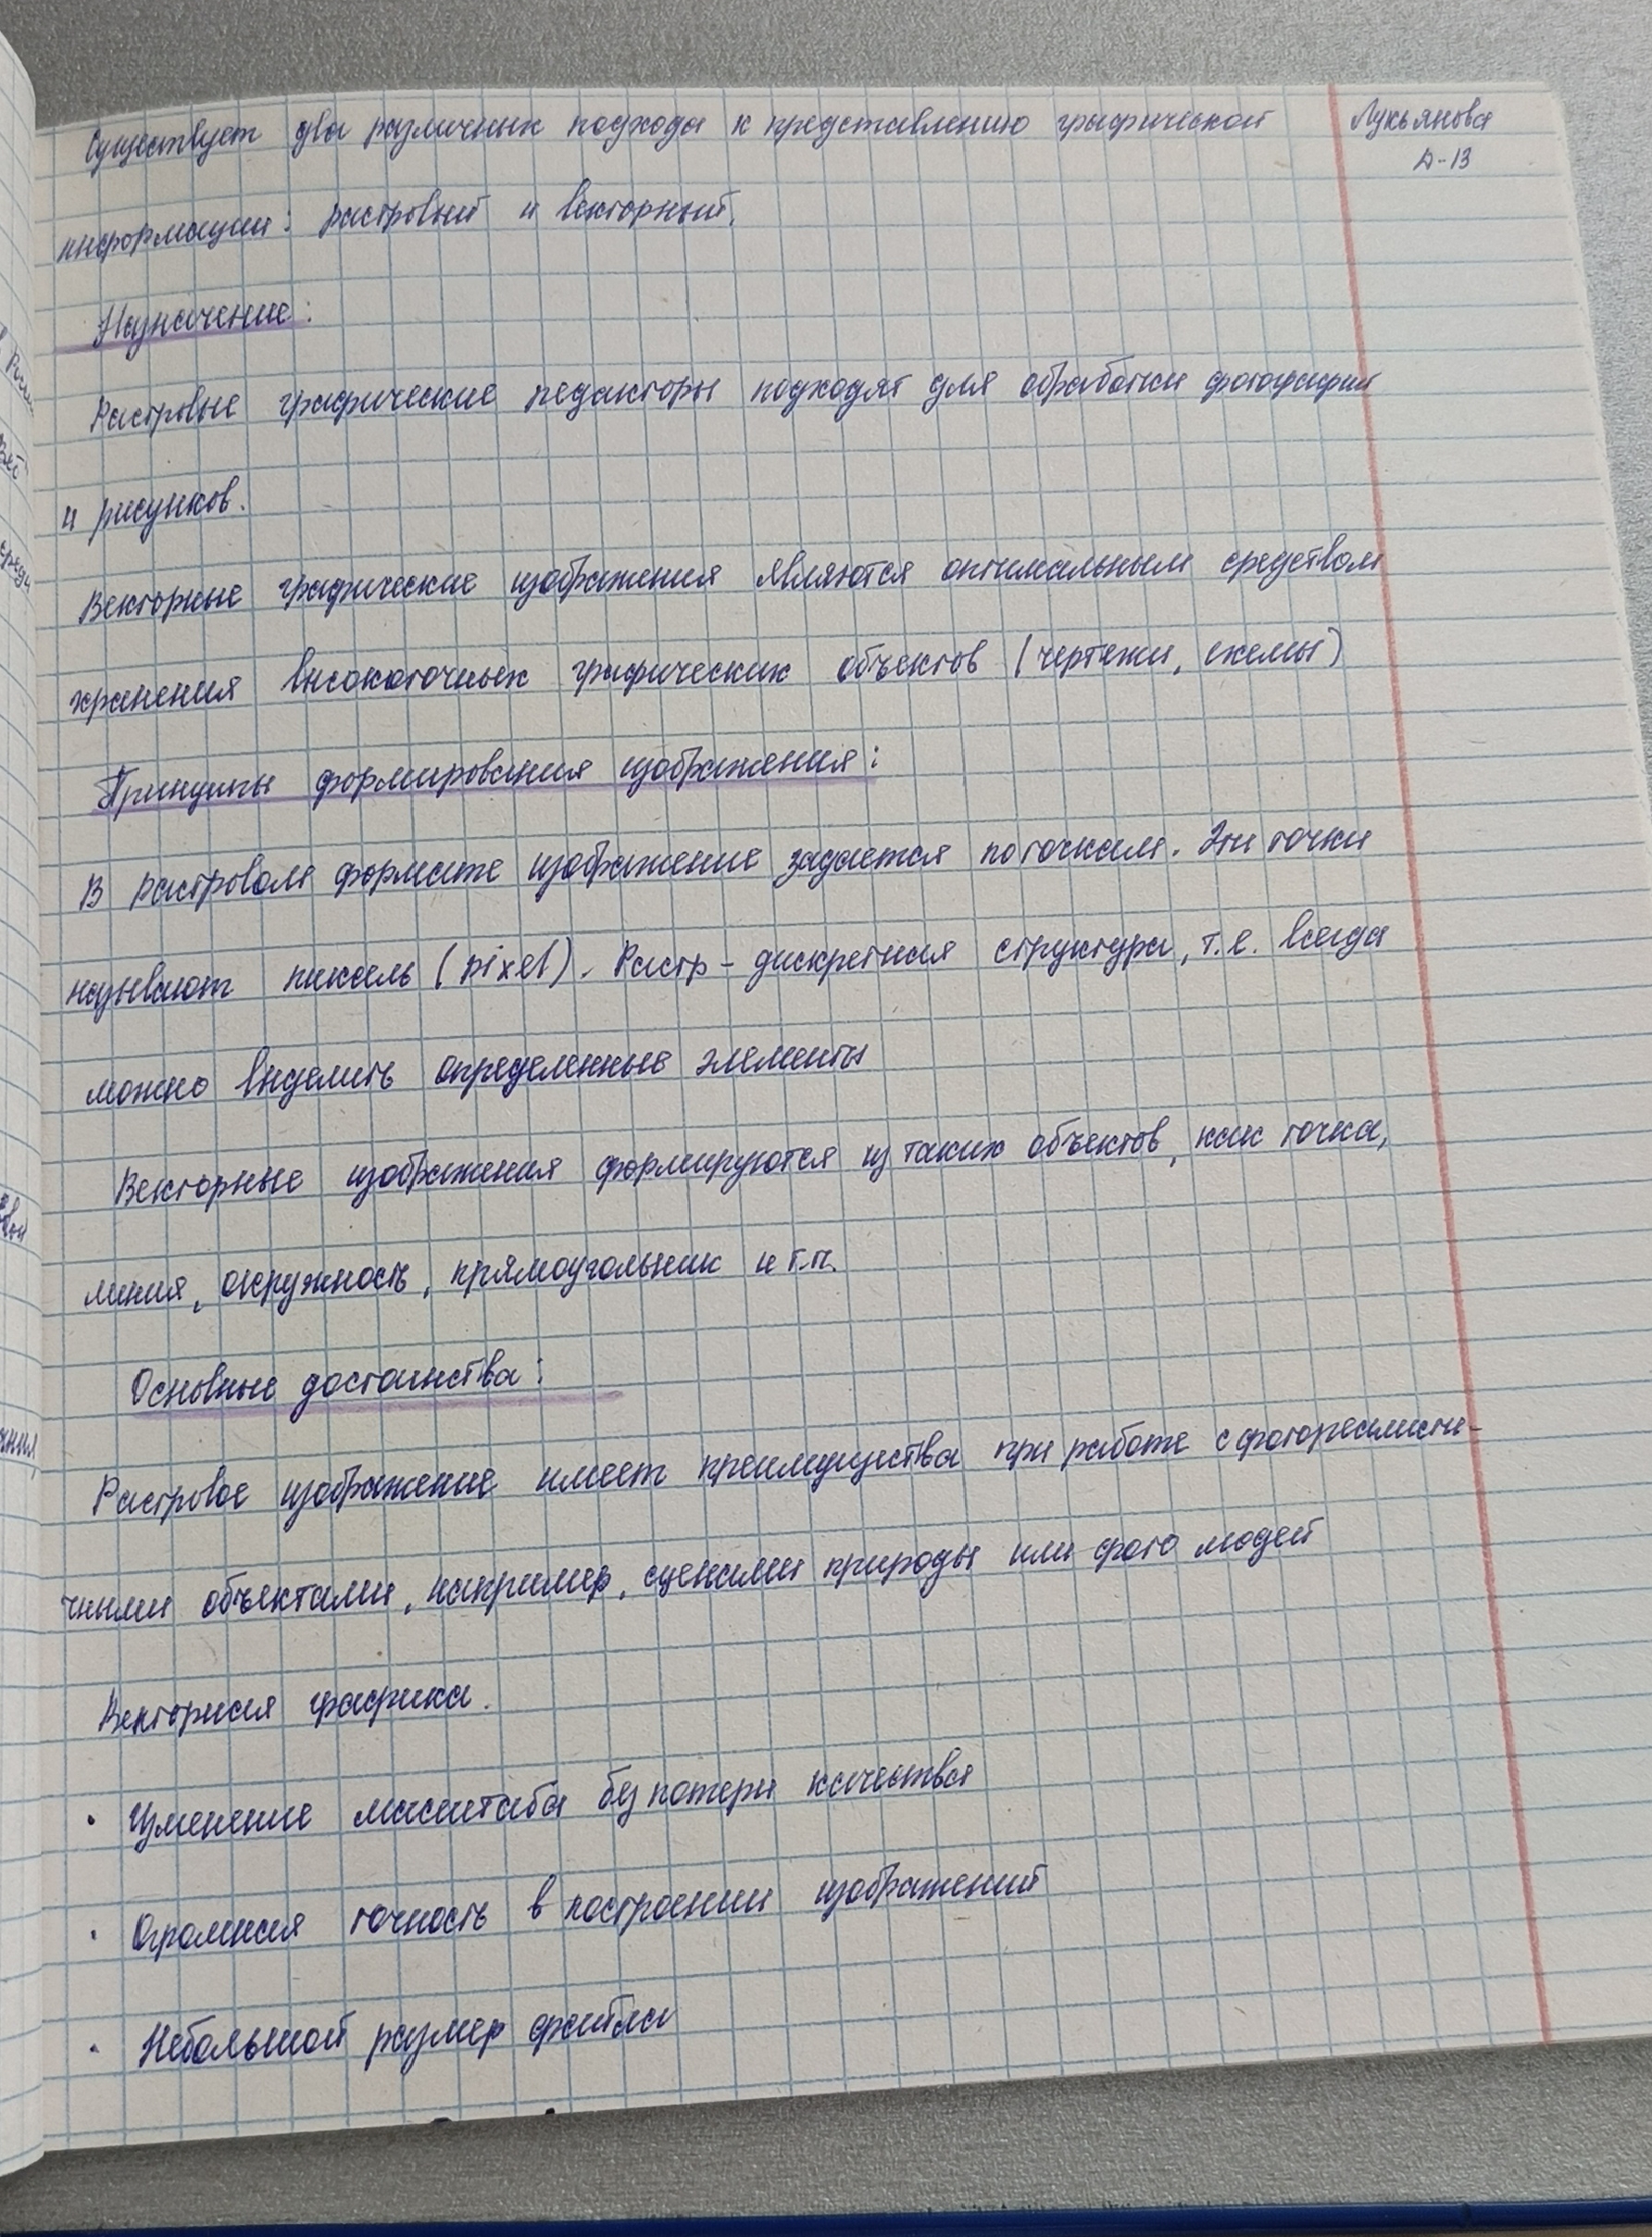 Существует два различных подхода к представлению графической
Лукьянова
Д-13
информации: растровый и векторный.
Назначение:
Растровые графические редакторы подходят для обработки фотографий
и рисунков.
Векторные графические изображения являются оптимальным средством
хранения высокоточных графических объектов (чертежи, схемы)
Принципы формирования изображения:
В растровом формате изображение задается по точкам. Эти точки
называют пиксель (pixel). Растр - дискретная структура, т.е. всегда
можно выделить определенные элементы
Векторные изображения формируются из таких объектов, как точка,
линия, окружность, прямоугольник и т.п.
Основные достоинства:
Растровое изображение имеет преимущества при работе с фотореалисти-
чными объектами, например, сценами природы или фото людей
Векторная графика.
· Изменение масштаба без потери качества
· Огромная точность в построении изображений
· Небольшой размер файла